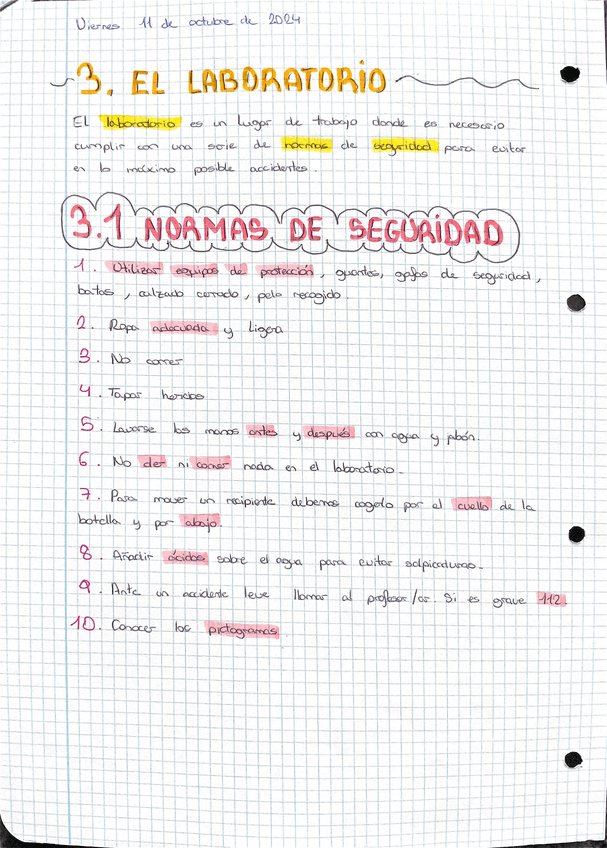 Viernes 11 de octubre de 2024
3. EL LABORATORIO
El laboratorio es un lugar de trabajo donde es necesario
cumplir con una serie de normas de seguridad para evitar
en lo máximo posible accidentes.
3.1 NORMAS DE SEGURIDAD
1. Utilizar equipos de protección, guantes, gafas de seguridad,
batas, calzado cerrado, pelo recogido.
2. Ropa adecuada y ligera
3. No correr
4. Tapar heridas
5. Lavarse las manos antes y después con agua y jabón.
6. No oler ni comer nada en el laboratorio.
7. Para mover un recipiente debemos cogerlo por el cuello de la
botella y por abajo.
8. Añadir ácidos sobre el agua para evitar salpicaduras.
9. Ante un accidente leve llamar al profesor/or. Si es grave 112.
10. Conocer los pictogramas